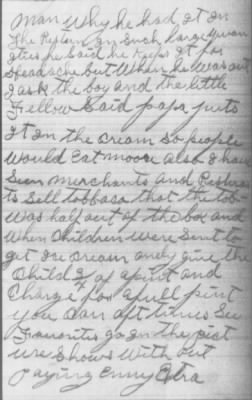 man why he had it in
The in such large quan
ities he said he Keeps it for
Headache but When he was out
I ask the boy and the little
Fellow Said papa puts
it in the cream so people
Would Eat moore also I have
Seen merchants and
to Sell tobbaco that the tob
Was half out of the box and
When Children were Sent to
get ice cream only give the
Child ½ of a pint and
Charge for a full pint
you can oft times See
Favorites go in the pict
ure Shows With out
Paying enny Extra